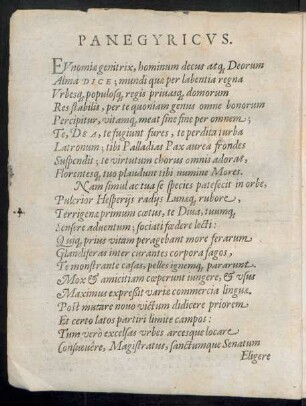 PANEGYRICVS.
EVnomiæ genitrix, hominum decus atq; Deorum
Alma DICE; mundi quæ per labentia regna
Vrbesq; populosq; regū priuatq; domorum
Res stabilis, per te quoniam genus omne bonorum
Percipitur, vitamq; meat sine fine per omnem;
Te, DEA, te fugiunt fures, te perdita turba
Latronum; tibi Palladias Pax aurea frondes
Suspendit; te virtutum chorus omnis adorat,
Florentesq; tuo plaudunt tibi numine Mores.
Nam simul ac tua se species patefecit in orbe,
Pulcrior Hesperijs radijs Lunæq; rubore,
Terrigenæ primum cœtus, te Diua, tuumq;
Sensere aduentum; sociati fœdere lecti:
Quiq; prius vitam peragebant more ferarum
Glandiferas inter curantes corpora fagos,
Te monstrante casas, pelles ignemq; pararunt.
Mox & amicitiam cœperunt iungere, & vsus
Maximus expressit variæ commercia linguæ.
Post mutare nouo victum didicere priorem
Et certo latos partiri limite campos:
Tum verò excelsas vrbes arcesque locare
Consueuêre, Magistratus, sanctumque Senatum
Eligere